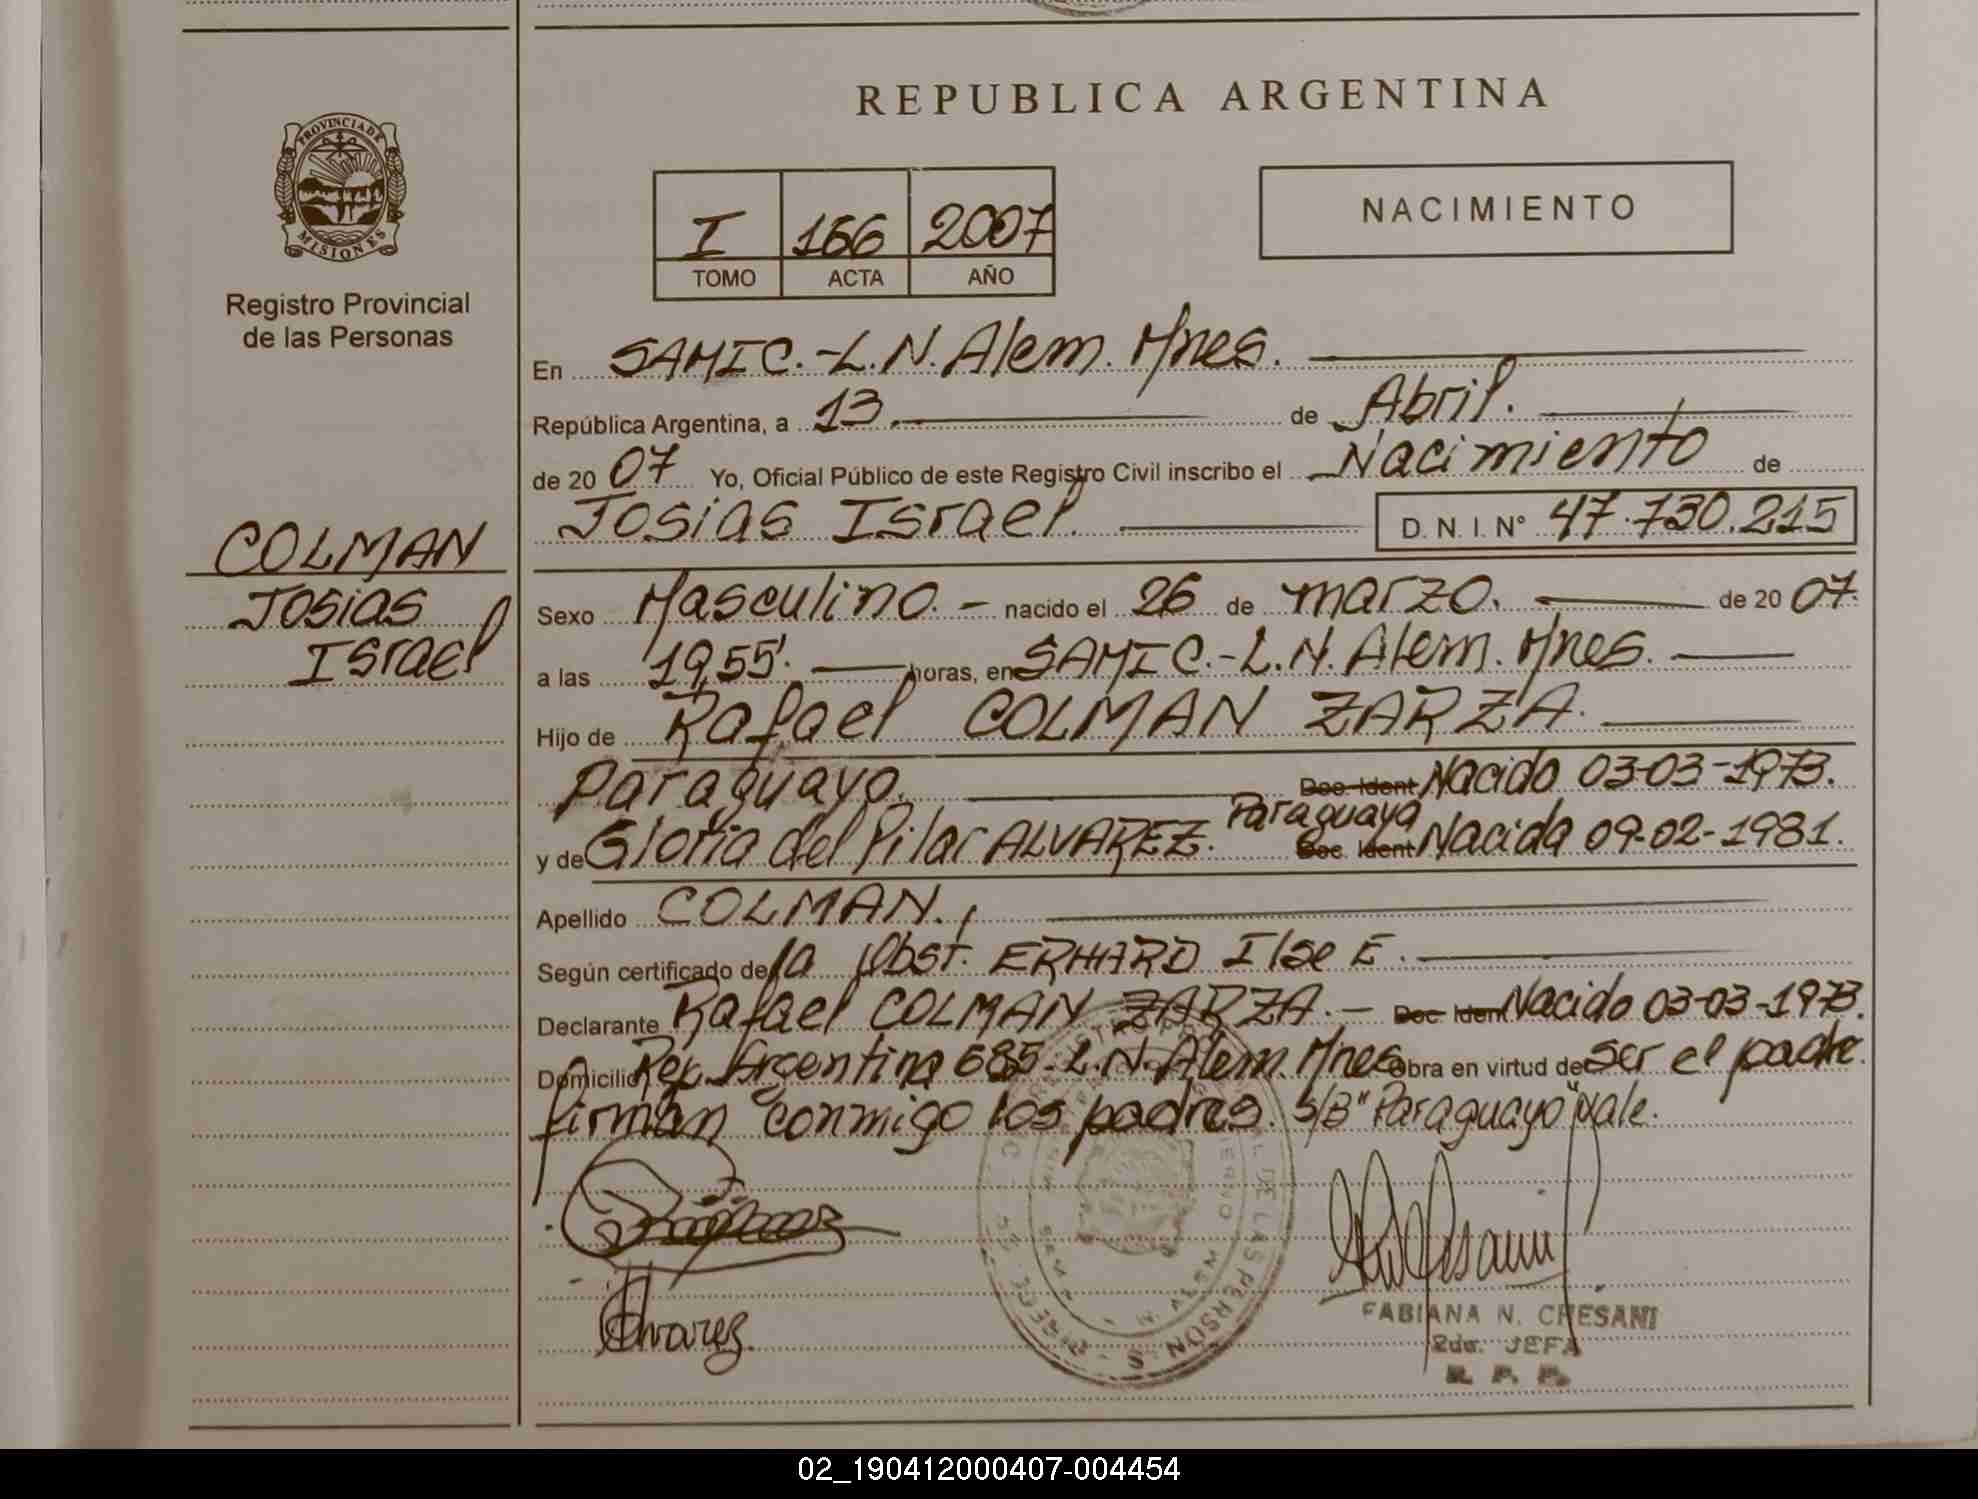 REPUBLICA ARGENTINA
PROVINCIA DE
MISIONES
Registro Provincial
de las Personas
I 166 2007
TOMO ACTA AÑO
NACIMIENTO
En SAMIC.-L.N.Alem. Mnes.
República Argentina, a 13. de Abril.
de 2007 Yo, Oficial Público de este Registro Civil inscribo el Nacimiento de
Josias Israel. D. N. I. N° 47.730.215
COLMAN
Josias
Israel
Sexo Masculino. - nacido el 26 de marzo. de 2007.
a las 19,55'. horas, en SAMIC.-L.N.Alem. Mnes.
Hijo de Rafael COLMAN ZARZA.
Paraguayo. Doc. Ident. Nacido 03-03-1973.
y de Gloria del Pilar ALVAREZ. Paraguaya Doc. Ident Nacida 09-02-1981.
Apellido COLMAN.,
Según certificado de la Obst. ERHARD Ilse E.
Declarante Rafael COLMAN ZARZA. - Doc Ident Nacido 03-03-1973.
Domicilio Rep. Argentina 685. L.N.Alem. Mnes Obra en virtud de ser el padre.
firman conmigo los padres. S/B "Paraguayo" Vale.
Alvarez
FABIANA N. CHESANI
2da. JEFA
R. P. P.
02_190412000407-004454